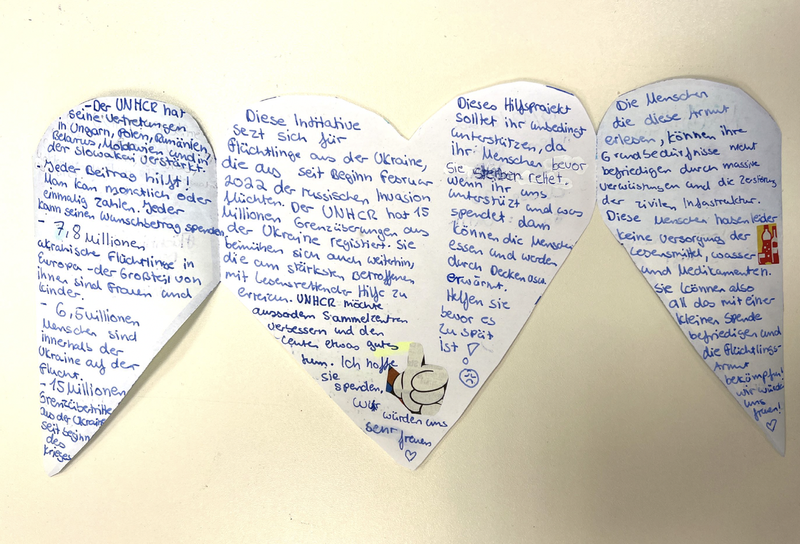 - Der UNHCR hat
seine Vertretungen
in Ungarn, Polen, Rumänien,
Belarus, Moldavien und in
der slowakei verstärkt.
- Jeder Beitrag hilft!
Man kann monatlich oder
einmalig zahlen. Jeder
kann seinen Wunschbetrag spenden
- 7,8 Millionen
ukrainische Flüchtlinge in
Europa - der Großteil von
ihnen sind Frauen und
Kinder.
- 6,5 Millionen
Menschen sind
innerhalb der
Ukraine auf der
Flucht.
- 15 Millionen
Grenzübertritte
aus der Ukraine
seit beginn
des
Krieges
Diese Inititative
sezt sich für
Flüchtlinge aus der Ukraine,
die aus seit Beginn Februar
2022 der russischen Invasion
flüchten. Der UNHCR hat 15
Millionen Grenzüberungen aus
der Ukraine registiert. Sie
bemühen sich auch weithin,
die am stärksten Betroffenen
mit Lebensrettender Hilfe zu
erreichen. UNHCR möchte
aussordem Sammelzentren
verbessern und den
Leuten etwas gutes
tun. Ich hoffe
sie
spenden,
wir würden uns
sehr freuen
Dieses Hilfsprojekt
solltet ihr unbedingt
unterstützen, da
ihr Menschen bevor
Sie sterben rettet.
wenn ihr uns
unterstüzt und was
spendet dann
können die Menschen
essen und werden
durch Decken
erwärmt.
Helfen sie
bevor es
zu spät
ist!
Die Menschen
die diese Armut
erleben, können ihre
Grundbedürfnisse nicht
befriedigen durch massive
verwüstungen und die Zerstörung
der zivilen Infrastruktur.
Diese Menschen haben leider
keine Versorgung der
Lebensmittel, wasser
und Medikamenten.
sie können also
all das mit einer
kleinen spende
befriedigen und
die Flüchtlings-
Armut
bekämpfen!
wir würden
uns
freuen!